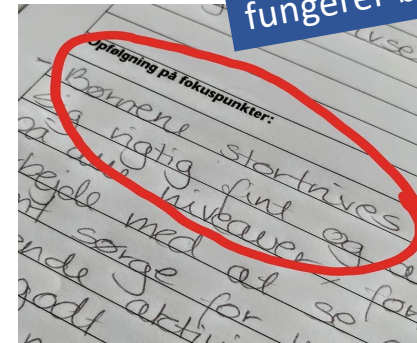 fungerer b
Opfølgning på fokuspunkter:
Børnene stortrives
sig rigtig fint og
på alle niveauer, for
bejde med at se
sørge for
ende akti
godt